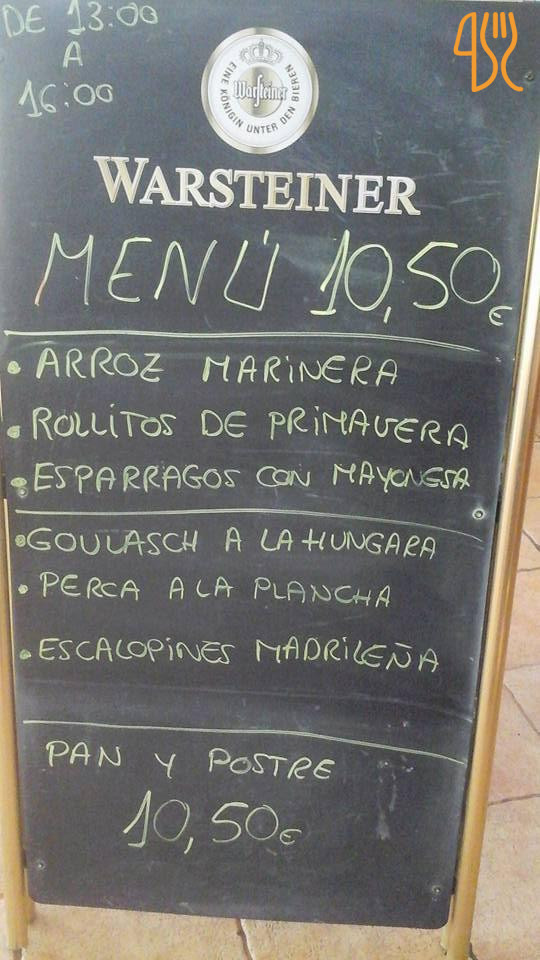 DE 13:00
A
16:00
EINE KÖNIGIN UNTER DEN BIEREN
Warsteiner
WARSTEINER
MENÚ 10,50€
• ARROZ MARINERA
• ROLLITOS DE PRIMAVERA
• ESPARRAGOS CON MAYONESA
• GOULASCH A LA HUNGARA
• PERCA A LA PLANCHA
• ESCALOPINES MADRILEÑA
PAN Y POSTRE
10,50€